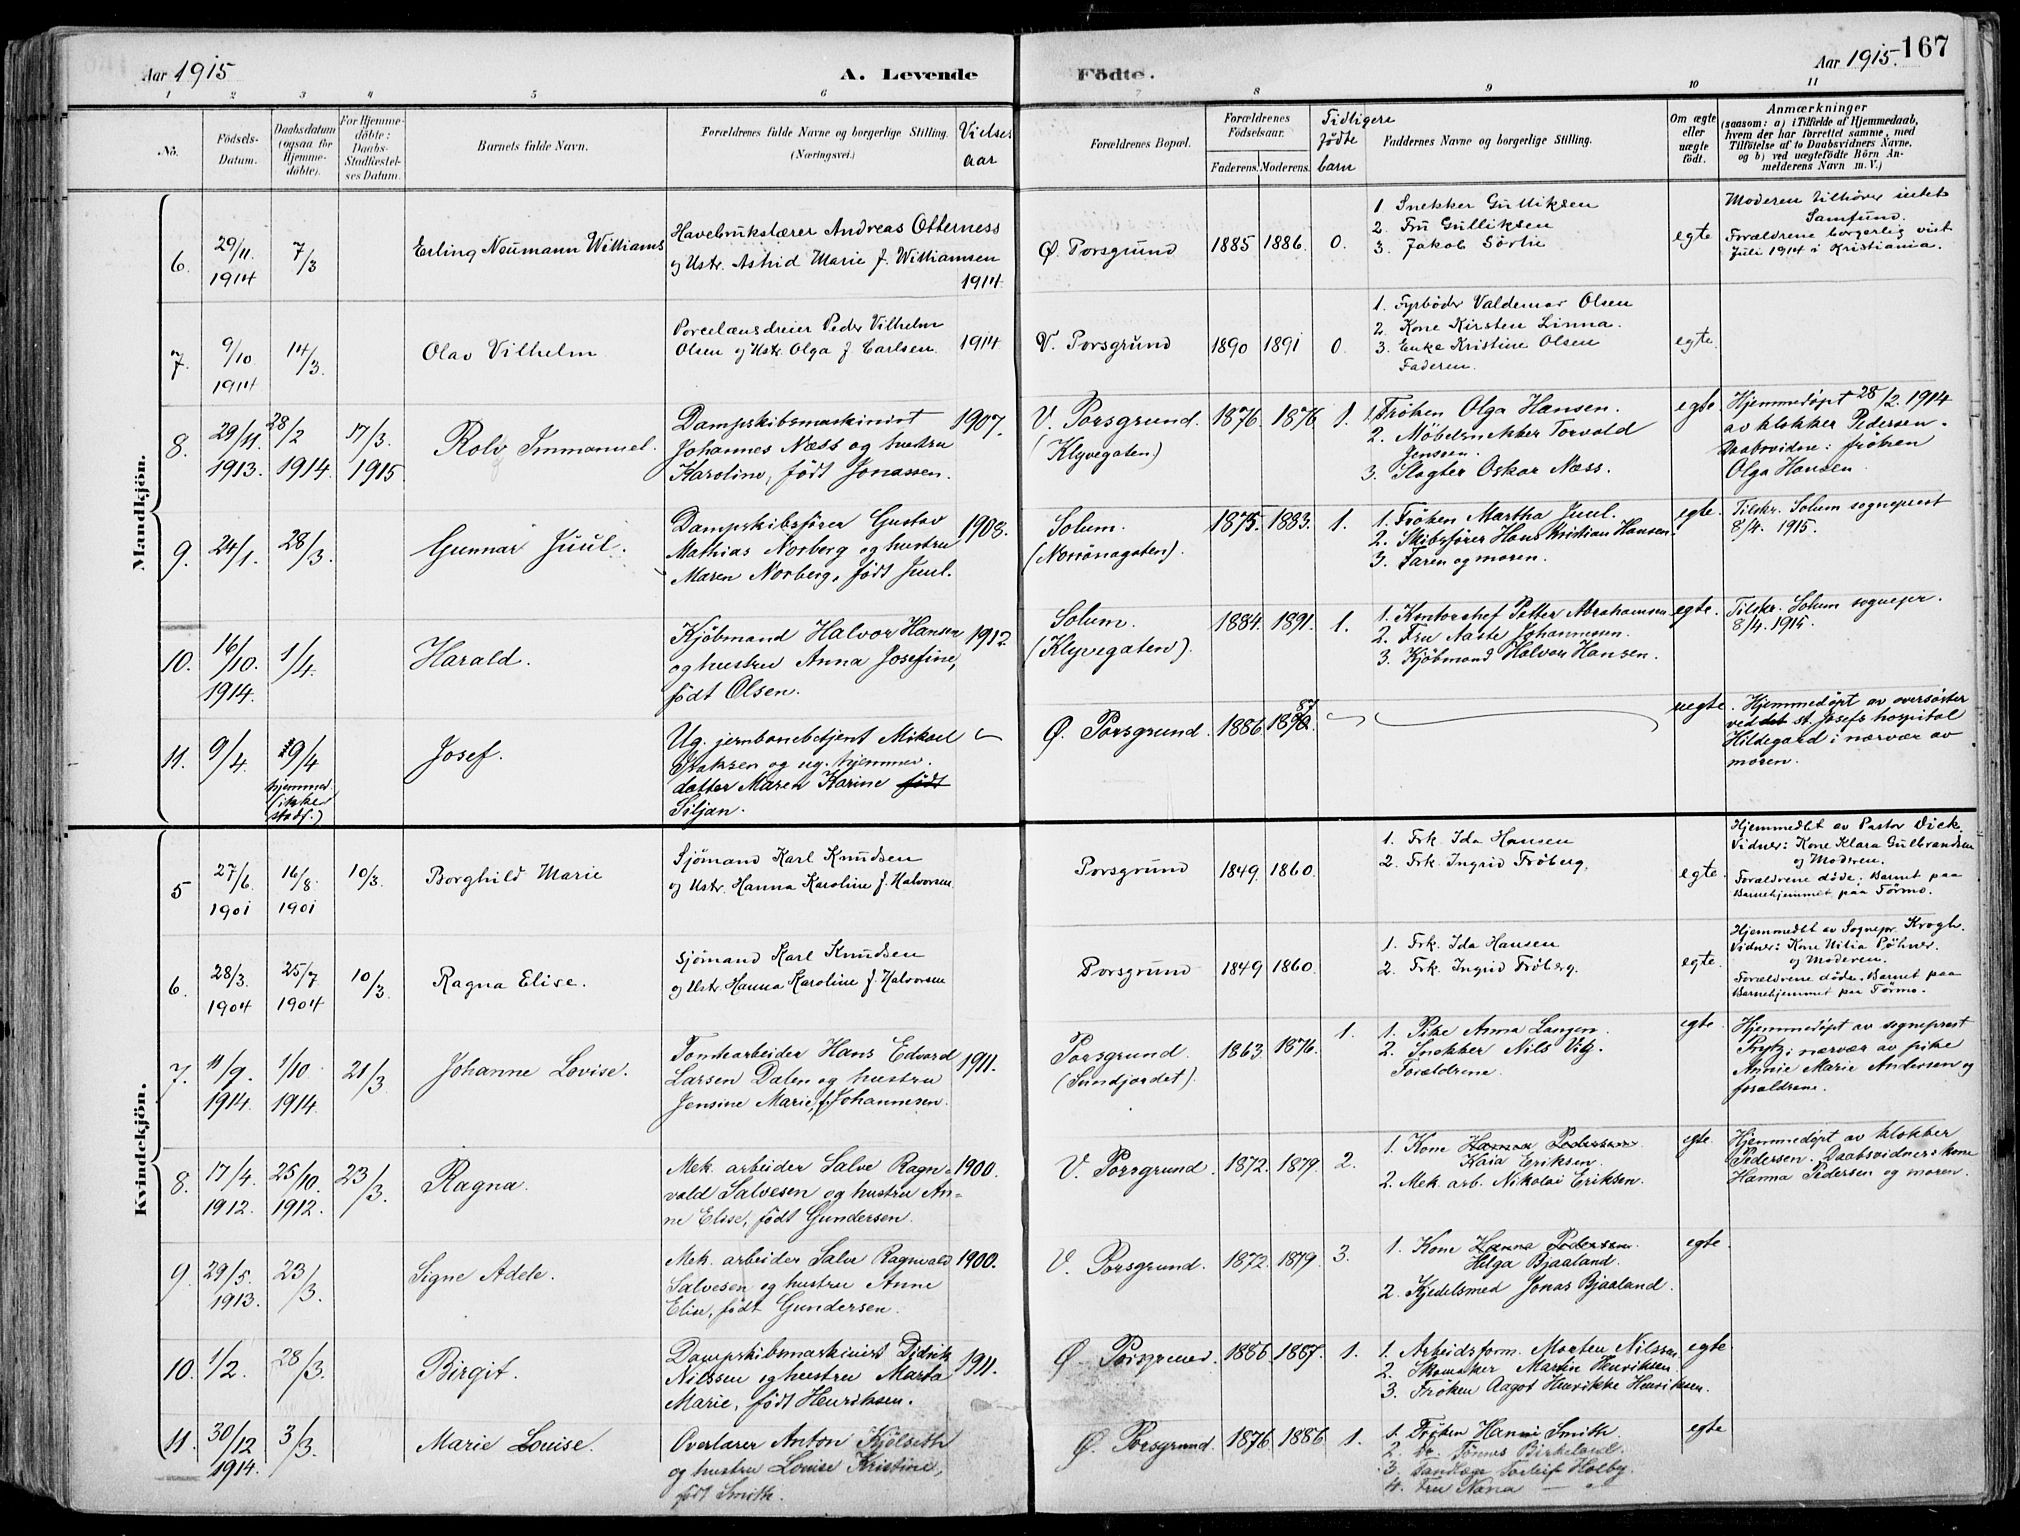 Aar 1915
A. Levende
Födte.
Aar 1915.
167
1 2 3 4 5 6 7 8 9 10 11
No.
Födsels-
Datum.
Daabsdatum
(ogsaa for
Hjemme-
döbte).
For Hjemme-
döbte:
Daabs-
Stadfæstel-
ses Datum.
Barnets fulde Navn.
Forældrenes fulde Navne og borgerlige Stilling.
(Næringsvei.)
Vielses
aar
Forældrenes Bopæl.
Forældrenes
Födselsaar.
Faderens. Moderens.
Tidligere
födte
barn
Faddernes Navne og borgerlige Stilling.
Om ægte
eller
uægte
födt.
Anmærkninger
(saasom: a) i Tilfælde af Hjemmedaab,
hvem der har forrettet samme, med
Tilföielse af to Daabsvidners Navne.
og b) ved uægtefödte Börn An-
melderens Navn m. V.)
Mandkjön.
6.
29/11.
1914
7/3
Erling Neumann Williams
Havebrukslærer Andreas Otterness
og Ustr. Astrid Marie f. Williamsen
1914
Ø. Porsgrund
1885 1886 0.
1 Snekker Gulliksen
2. Fru Gulliksen
3. Jakob Sörlie
egte
Moderen tilhörer intet
Samfund.
Forældrene borgerlig viet
Juli 1914 i Kristiania.
7.
9/10
1914
14/3.
Olav Vilhelm
Porcelænsdreier Peder Vilhelm
Olsen og Ustr. Olga f. Carlsen.
1914
V. Porsgrund
1890 1891 0.
1. Fyrböder Valdemar Olsen
2. Kone Kirsten Linna.
3. Enke Kristine Olsen
Faderen.
egte.
8.
29/11.
1913.
28/2
1914.
17/3.
1915
Rolv Immanuel.
Dampskibsmaskinist
Johannes Næss og hustru
Karoline, født Jonassen.
1907.
V. Porsgrund.
(Klyvegaten)
1876. 1876 1.
1. Frøken Olga Hansen.
2. Møbelsnekker Torvald
Jensen.
3. Slagter Oskar Næss.
egte
Hjemmedøpt 28/2. 1914
av klokker Pedersen.
Daabsvidne: frøken
Olga Hansen.
9.
24/1.
28/3.
Gunnar Juul.
Dampskibsfører Gustav
Mathias Norberg og hustru
Maren Norberg, født Juul.
1908.
Solum.
(Norönagaten).
1875. 1883. 1.
1. Frøken Martha Juul.
2. Skibsfører Hans Kristian Hansen.
3. Faren og moren.
egte.
Tilskr. Solum sogneprest
8/4. 1915.
10.
16/10.
1914.
1/4.
Harald.
Kjøbmand Halvor Hansen
og hustru Anna Josefine,
født Olsen.
1912.
Solum.
(Klyvegaten).
1884. 1891. 1.
1. Kontorchef Petter Abrahamsen
2. Fru Aaste Johannesen.
3. Kjøbmand Halvor Hansen.
egte.
Tilskr. Solum sognepr.
8/4. 1915.
11.
9/4.
19/4
hjemmed.
(ikke
stadf.)
Josef.
Ug. jernbanebetjent Mikael
Isaksen og ug. hjemmev.
datter Maren Karine født
Siljan.
Ø. Porsgrund.
1886. 1890. 87
uegte.
Hjemmedøpt av oversöster
ved det st. Josefs hospital
Hildegard i nærvær av
moren.
Kvindekjön.
5
27/6
1901
16/8.
1901
10/3.
Borghild Marie
Sjömand Karl Knudsen
og Ustr. Hanna Karoline f. Halvorsen
Porsgrund
1849. 1860.
1. Frk. Ida Hansen
2. Frk. Ingrid Fröberg.
egte.
Hjemmedöbt av Pastor Dick.
Vidner: Kone Klara Gulbrandsen
og Moderen.
Forældrene döde. Barnet paa
Barnehjemmet paa Förmo.
6.
28/3.
1904
25/7
1904
10/3.
Ragna Elise.
Sjömand Karl Knudsen
og Ustr. Hanna Karoline f. Halvorsen
Porsgrund
1849 1860.
1. Frk. Ida Hansen
2. Frk. Ingrid Fröberg.
egte.
Hjemmedöbt av Sognepr. Krogh.
Vidner: Kone
og Moderen.
Forældrene döde. Barnet paa
Barnehjemmet paa Förmo.
7.
11/9.
1914
1/10.
1914.
21/3
Johanne Lovise.
Tomtearbeider Hans Edvard
Larsen Dalen og hustru
Jensine Marie, f. Johannesen.
1911.
Porsgrund.
(Sundjordet).
1863. 1876.
1
1. Pike Anna Langen.
2. Snekker Nils Vig.
Forældrene.
egte.
Hjemmedøpt av sogneprest
Prytz i nærvær av pike
Annie Marie Andersen og
foraldrene.
8.
17/4.
1912.
25/10.
1912.
23/3.
Ragna.
Mek. arbeider Salve Ragn-
vald Salvesen og hustru An-
ne Elise, født Gundersen.
1900.
V. Porsgrund.
1872. 1879. 2.
1. Kone Hanna Pedersen
Kaia Eriksen.
2. Mek. arb. Nikolai Eriksen.
egte.
Hjemmedøpt av klokker
Pedersen. Daabsvidner: kone
Hanna Pedersen og moren.
9.
29/5.
1913.
23/3.
Signe Adele.
Mek. arbeider Salve Ragnvald
Salvesen og hustru Anne
Elise, født Gundersen.
1900.
V. Porsgrund.
1872. 1879. 3.
1. Kone Hanna Pedersen.
Helga Bjaaland.
2. Kjedelsmed Jonas Bjaaland.
egte.
10.
1/2.
28/3.
Birgit.
Dampskibsmaskinist Didrik
Nilssen og hustru Marta
Marie, født Henriksen.
1911.
Ø. Porsgrund.
1886. 1887. 1.
1. Arbeidsform. Morten Nilssen
2. Skomaker Martin Henriksen.
3. Frøken Aagot Henrikke Henriksen.
egte
11.
30/12
1914.
3/3.
Marie Louise.
Overlærer Anton Kjölseth
og hustru Louise Kristine,
født Smith.
Ø. Porsgrund.
1876. 1886. 1.
1. Frøken Hanna Smith.
2. Dr. Tönnes Birkeland.
3. Tandlæge Torleif Holby.
4. Fru Nanna —
egte